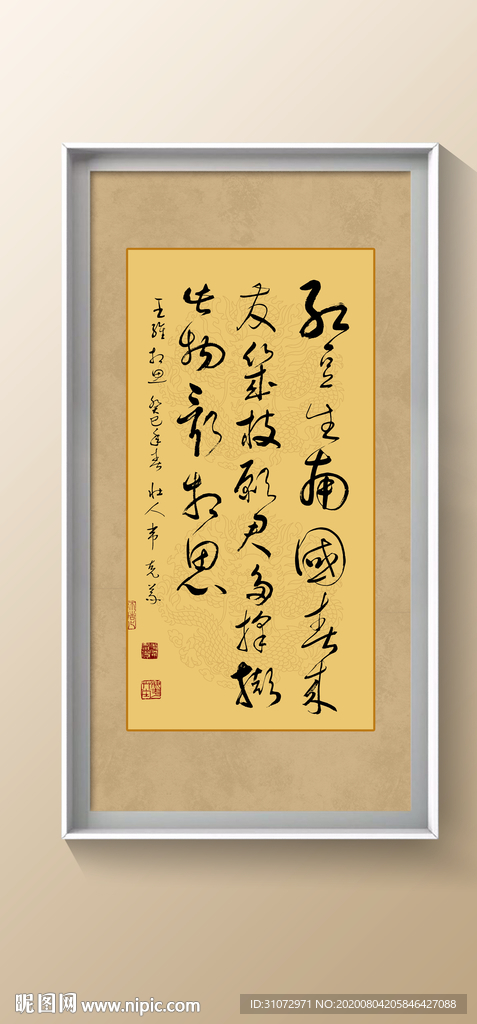 红豆生南國春来
发幾枝願君多採撷
此物最相思
王維相思 癸巳年春 壮人韦克义
昵图网 www.nipic.com
ID:31072971 NO:20200804205846427088